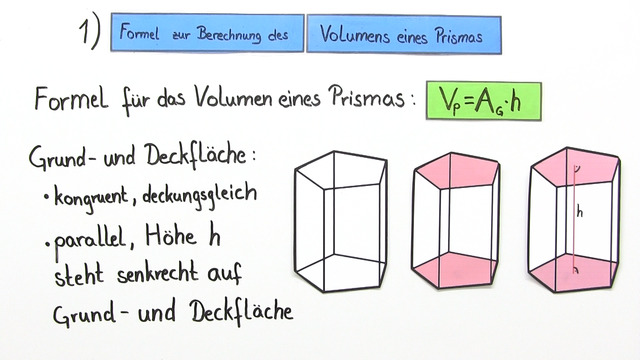 1) Formel zur Berechnung des Volumens eines Prismas
Formel für das Volumen eines Prismas: V_P = A_G · h
Grund- und Deckfläche:
• kongruent, deckungsgleich
• parallel, Höhe h
steht senkrecht auf
Grund- und Deckfläche
h